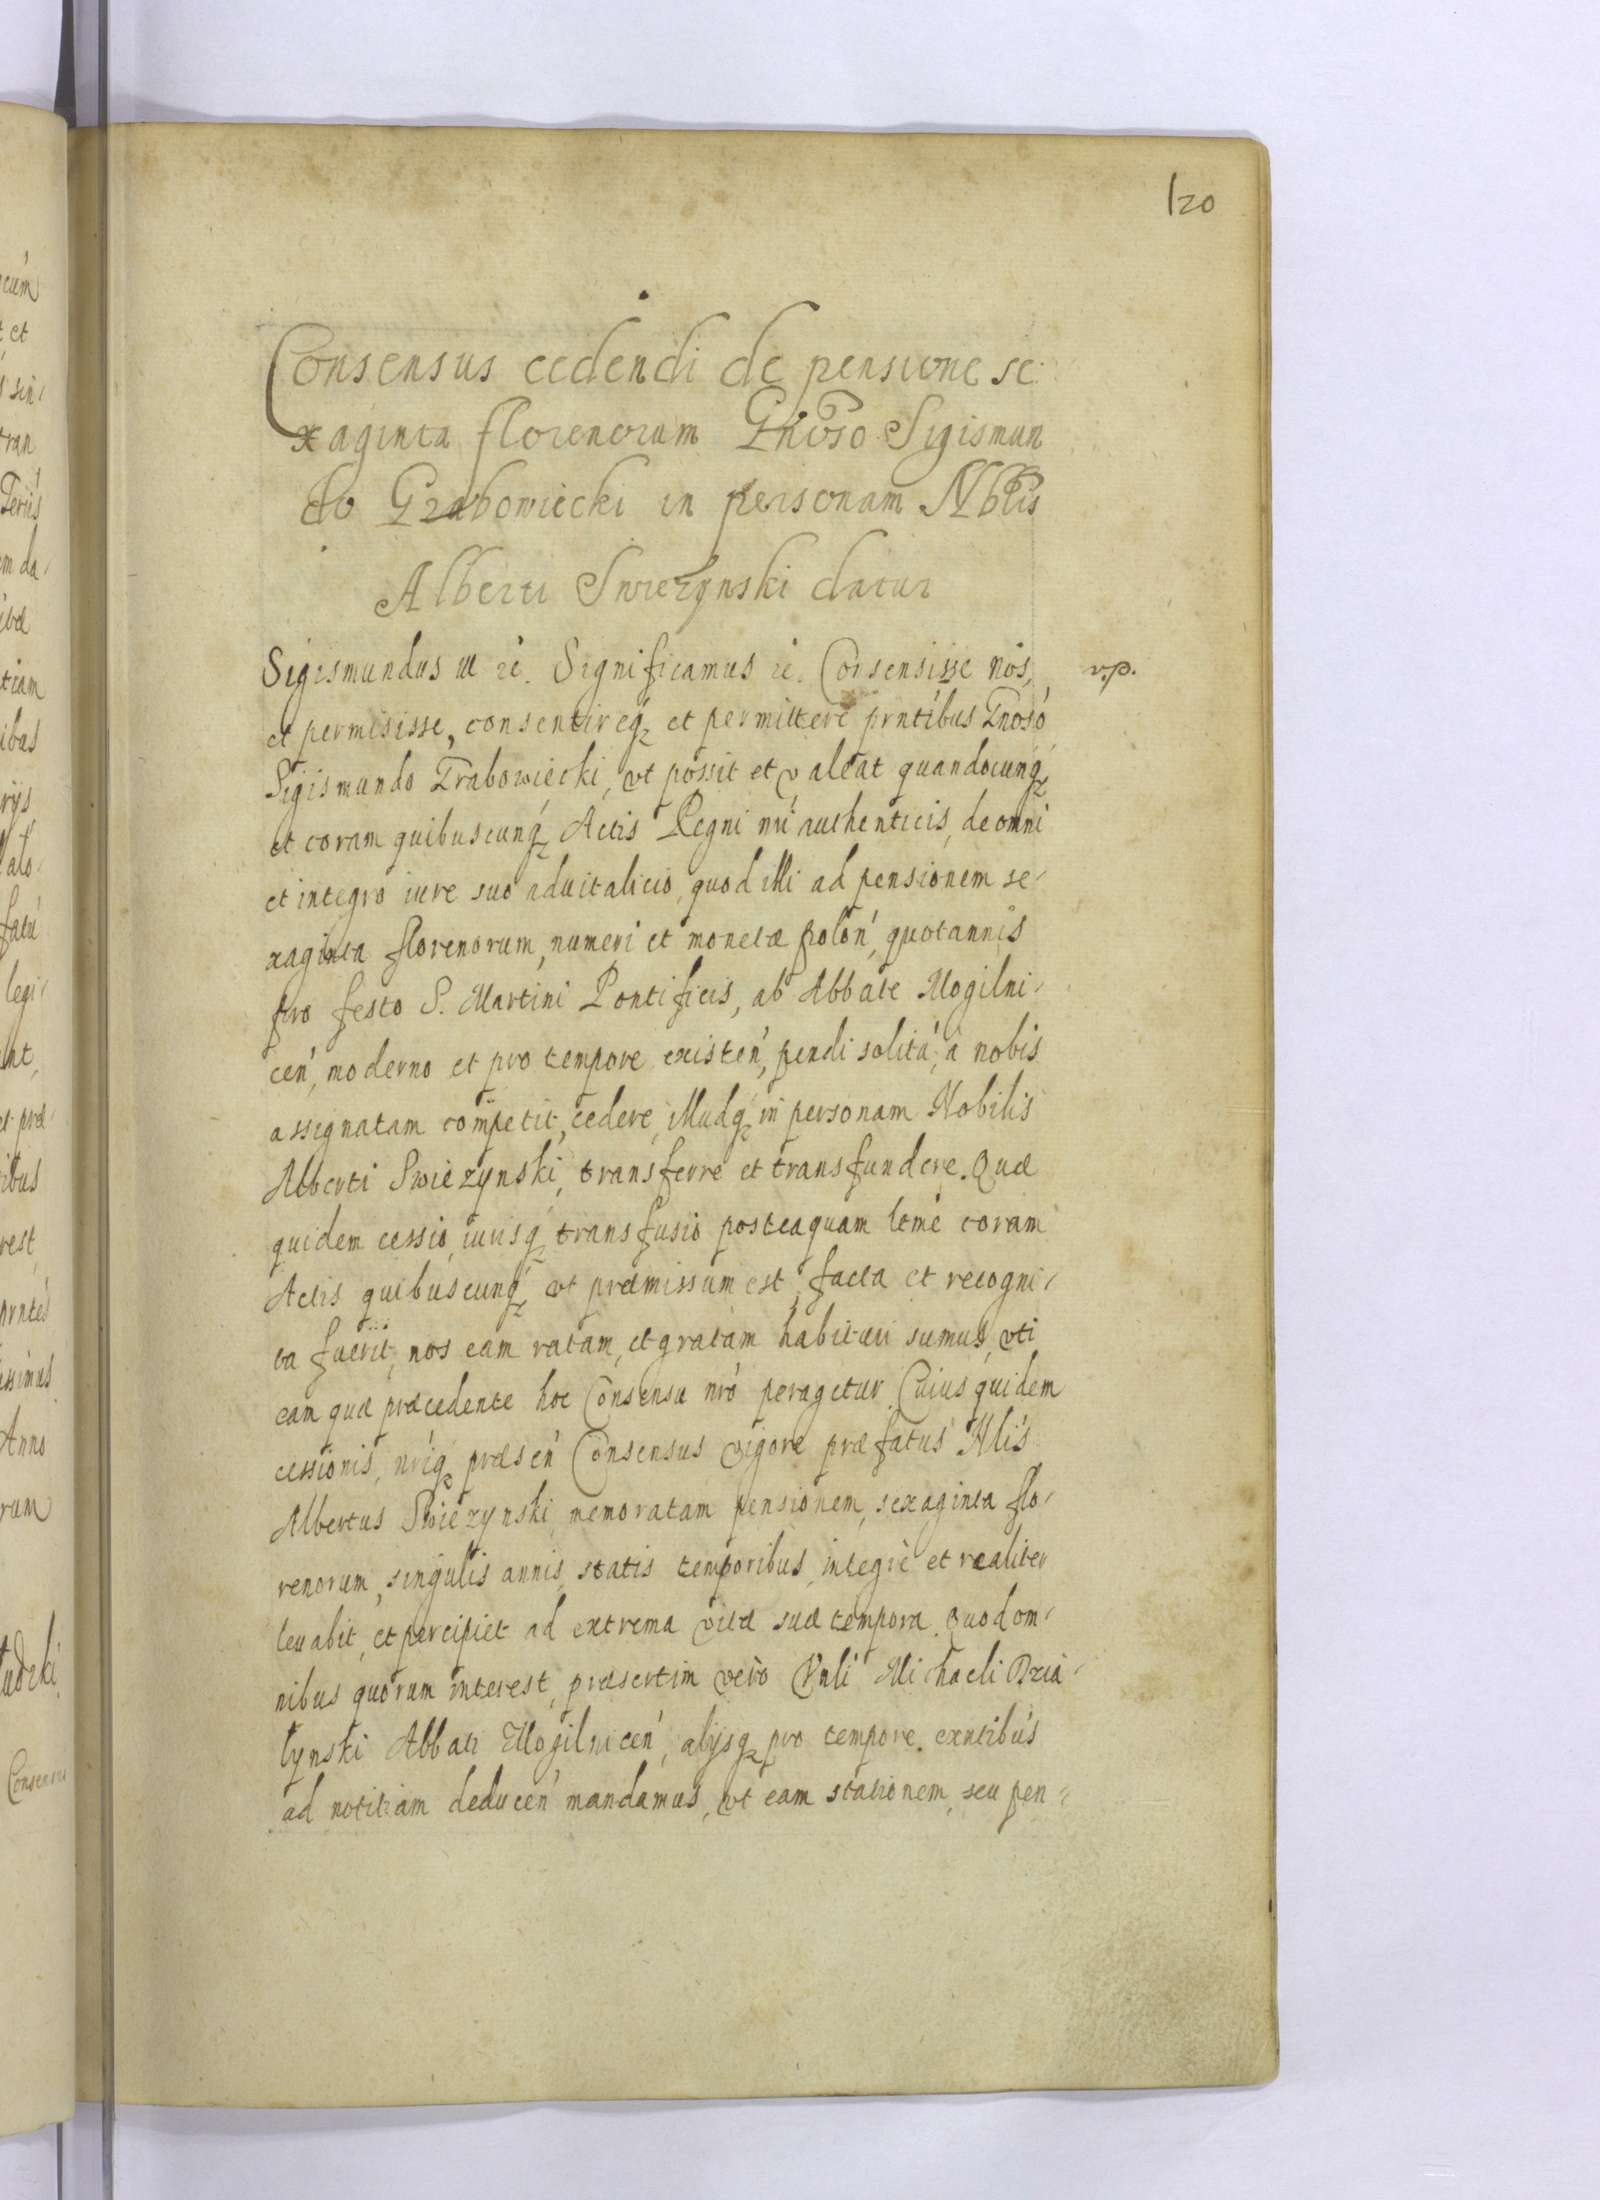 120
Consensus cedendi de pensione se
xaginta florenorum Gnoso Sigismun
do Grabowiecki in personam Nblis
Alberti Swiezynski datur
Sigismundus III rc. Significamus rc. Consensisse nos,
v.p.
et permisisse, consentireq et permittere prntibus Gnoso
Sigismundo Grabowiecki, vt possit et valeat quandocunq
et coram quibuscunq Actis Regni nri authenticis, de omni
et integro iure suo aduitalicio, quod illi ad pensionem se-
xaginta florenorum, numeri et monetæ polon, quotannis
pro festo S. Martini Pontificis, ab Abbate Mogilni-
cen, moderno et pro tempore existen, pendi solita, a nobis
assignatam competit, cedere, illudq in personam Nobilis
Alberti Swiezynski, transferre et transfundere. Quæ
quidem cessio, iurisq transfusio posteaquam ltme coram
Actis quibuscunq vt præmissum est, facta et recogni-
ta fuerit, nos eam ratam, et gratam habituri sumus, vti
eam quæ præcedente hoc Consensu nro peragetur. Cuius quidem
cessionis, nriq præsen Consensus vigore præfatus Nlis
Albertus Swiezynski memoratam pensionem, sexaginta flo-
renorum, singulis annis, statis temporibus, integre et realiter
leuabit, et percipiet ad extrema vitæ suæ tempora. Quod om-
nibus quorum interest, præsertim vero Vnli Michaeli Dzia-
lynski Abbati Mogilnicen, alijsq pro tempore exntibus
ad notitiam deducen mandamus, vt eam stationem, seu pen-